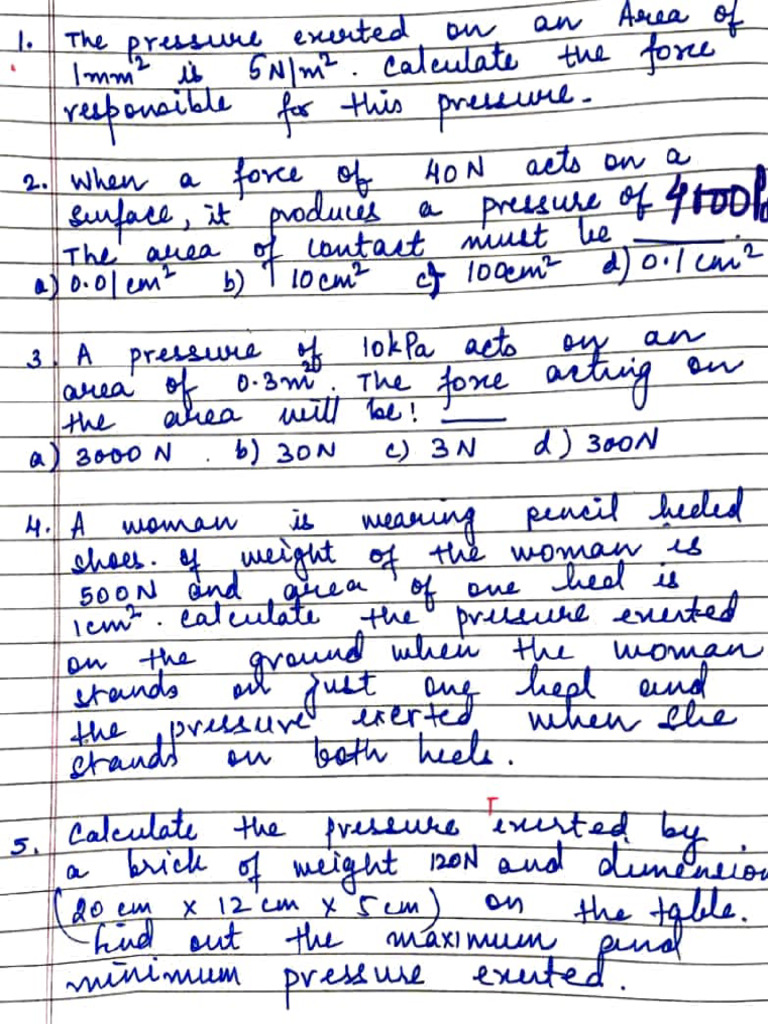 1. The pressure exerted on an Area of
1mm² is 5N/m². Calculate the force
responsible for this pressure.
2. When a force of 40N acts on a
surface, it produces a pressure of
The area of contact must be ____.
a) 0.01cm² b) 10cm² c) 100cm² d) 0.1cm²
3. A pressure of 10kPa acts on an
area of 0.3m². The force acting on
the area will be! ____
a) 3000 N . b) 30N c) 3N d) 300N
4. A woman is wearing pencil heeled
shoes. If weight of the woman is
500N and area of one heel is
1cm². Calculate the pressure exerted
on the ground when the woman
stands on just one heel and
the pressure exerted when she
stands on both heels.
5. Calculate the pressure exerted by
a brick of weight 120N and dimension
(20 cm x 12 cm x 5 cm) on the table.
Find out the maximum and
minimum pressure exerted.